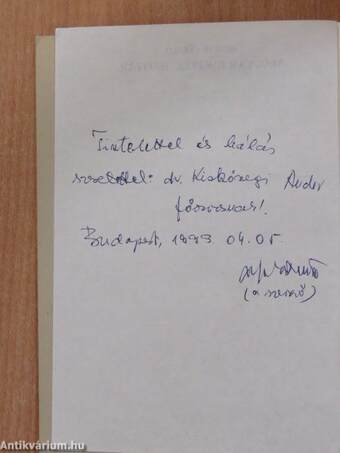 Tisztelettel és hálás
szeretettel: dr. Kiskőszegi Andor
főorvosnak!
Budapest, 1999. 04. 05.
(a szerző)
Antikvárium.hu